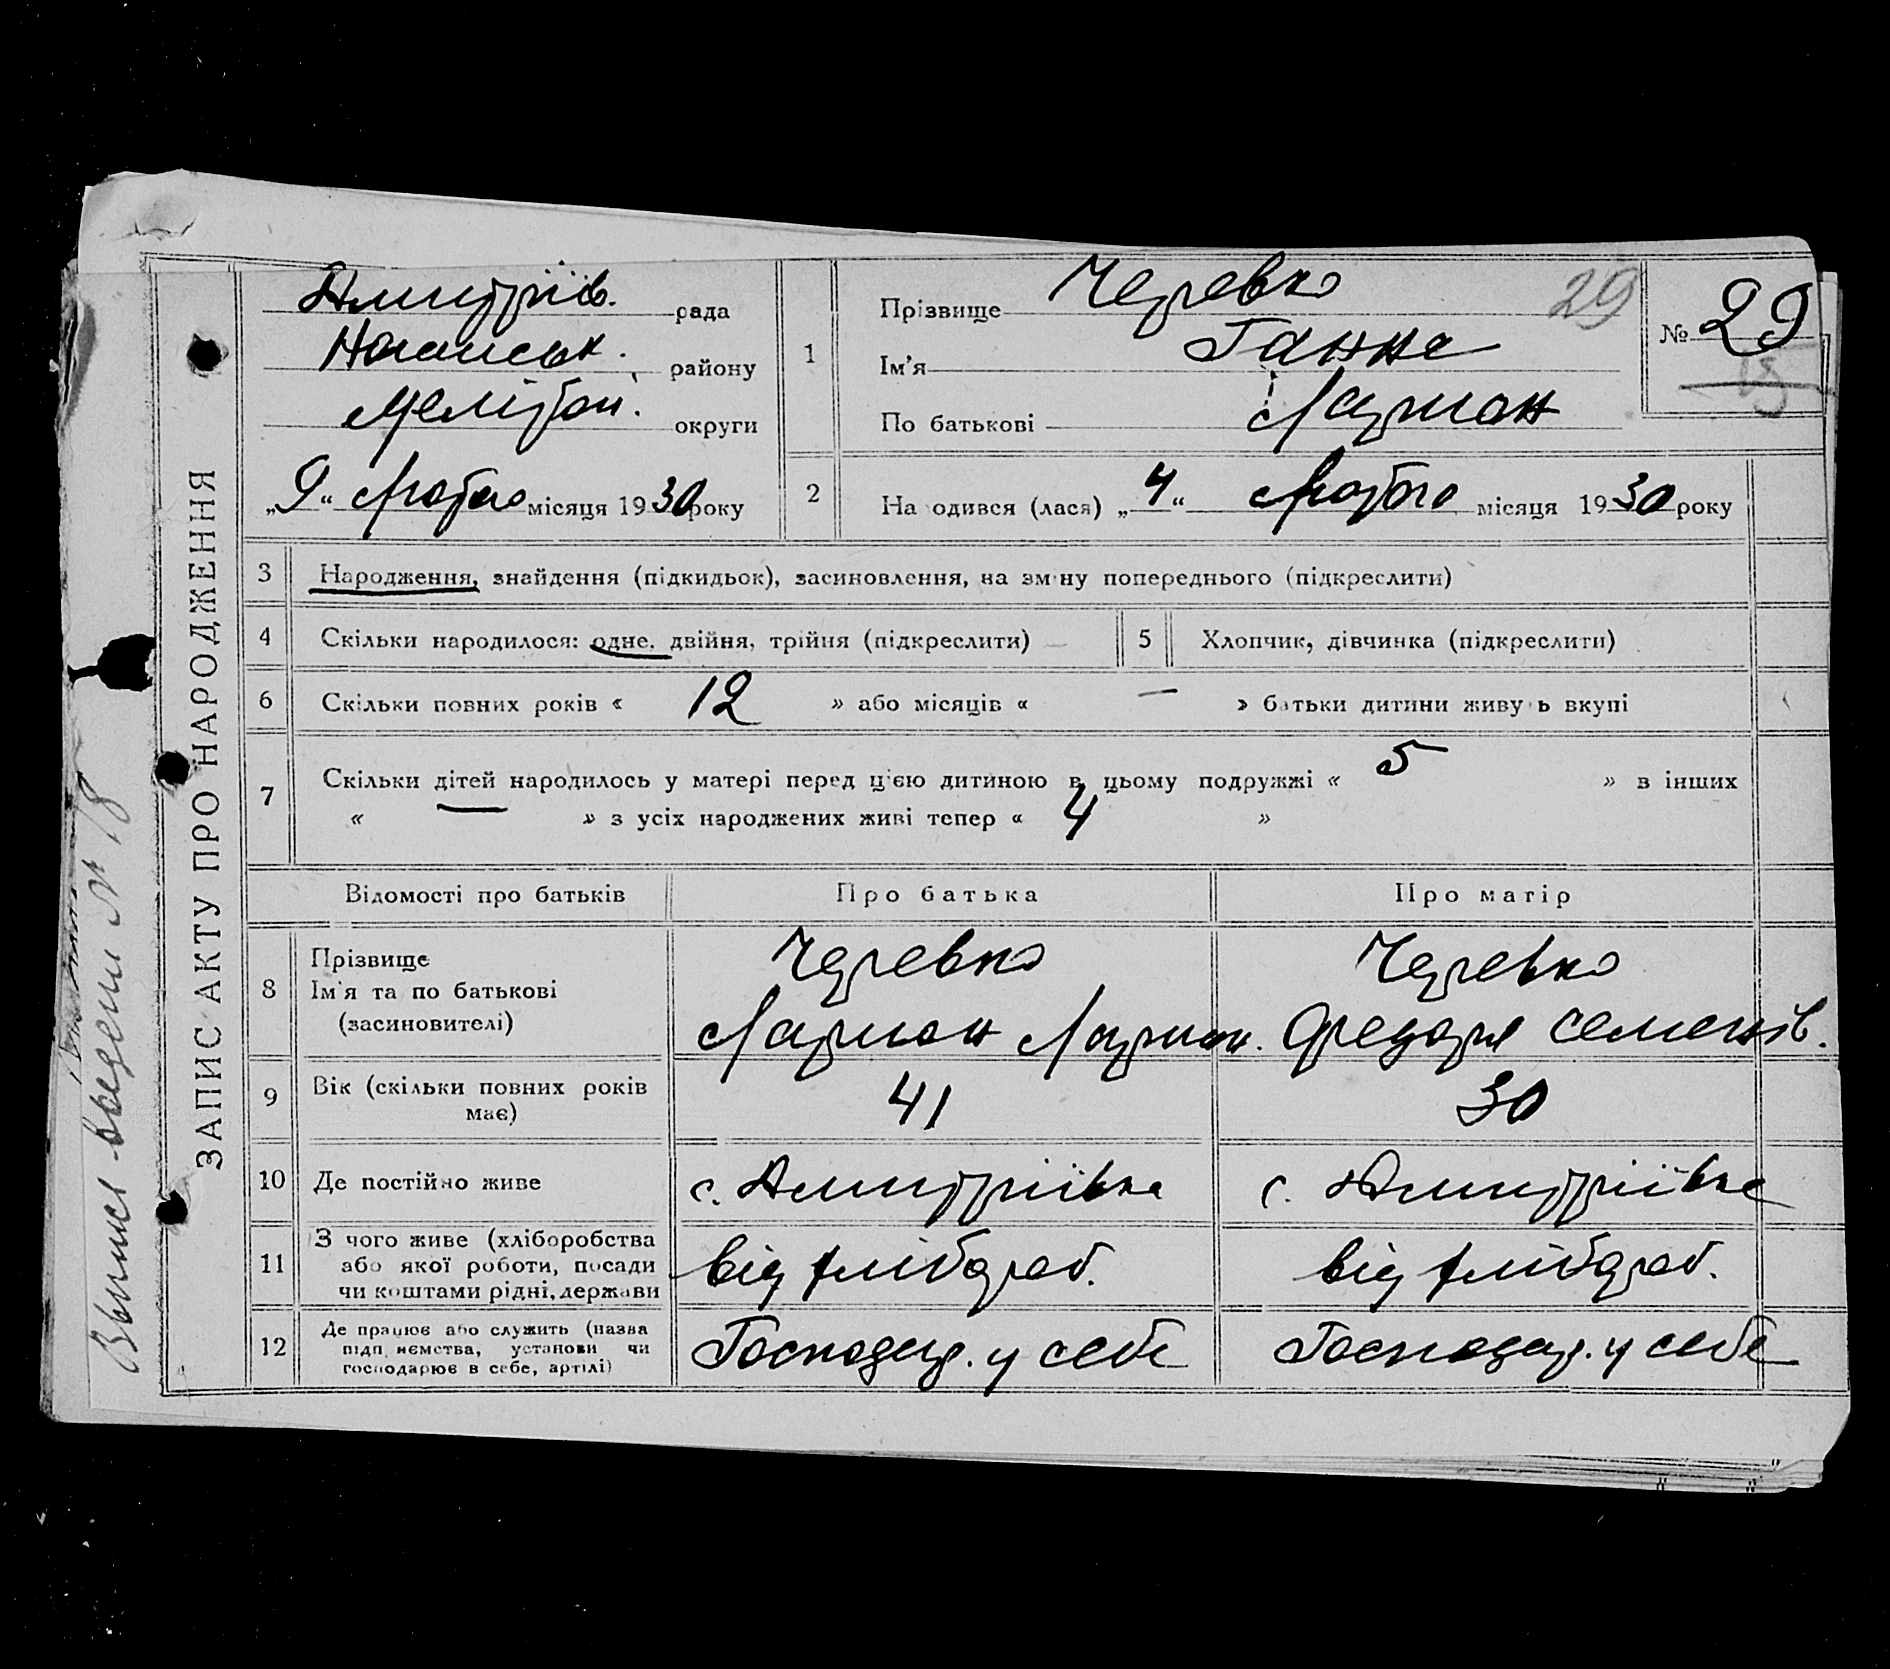 ЗАПИС АКТУ ПРО НАРОДЖЕННЯ
Дмитріїв. рада
Ногайськ. району
Мелітоп. округи
„9“ Лютого місяця 1930 року
1
Прізвище Черевко
29
Ім’я Ганна
По батькові Ларион
№ 29
2
Народився (лася) „4“ Лютого місяця 1930 року
3 Народження, знайдення (підкидьок), засиновлення, на зміну попереднього (підкреслити)
4 Скільки народилося: одне, двійня, трійня (підкреслити)
5 Хлопчик, дівчинка (підкреслити)
6 Скільки повних років « 12 » або місяців « — » батьки дитини живуть вкупі
7 Скільки дітей народилось у матері перед цією дитиною в цьому подружжі « 5 » в інших
« — » з усіх народжених живі тепер « 4 »
Відомості про батьків Про батька Про матір
8 Прізвище Черевко Черевко
Ім’я та по батькові
(засиновителі) Ларион Ларион. Федора Семенів.
9 Вік (скільки повних років 41 30
має)
10 Де постійно живе с. Дмитріївка с. Дмитріївка
11 З чого живе (хліборобства
або якої роботи, посади від хлібороб. від хлібороб.
чи коштами рідні, держави
12 Де працює або служить (назва
підприємства, установи чи Господар. у себе Господар. у себе
господарює в себе, артілі)